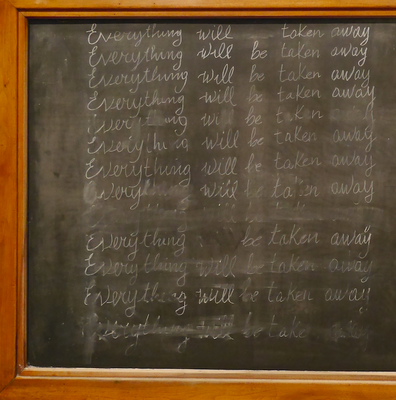 Everything will taken away
Everything will be taken away
Everything will be taken away
Everything will be taken away
Everything will be taken
Everything will be taken away
Everything will be taken away
Everything will be taken away
Everything be taken away
Everything will be taken away
Everything will be taken away
Everything will be take